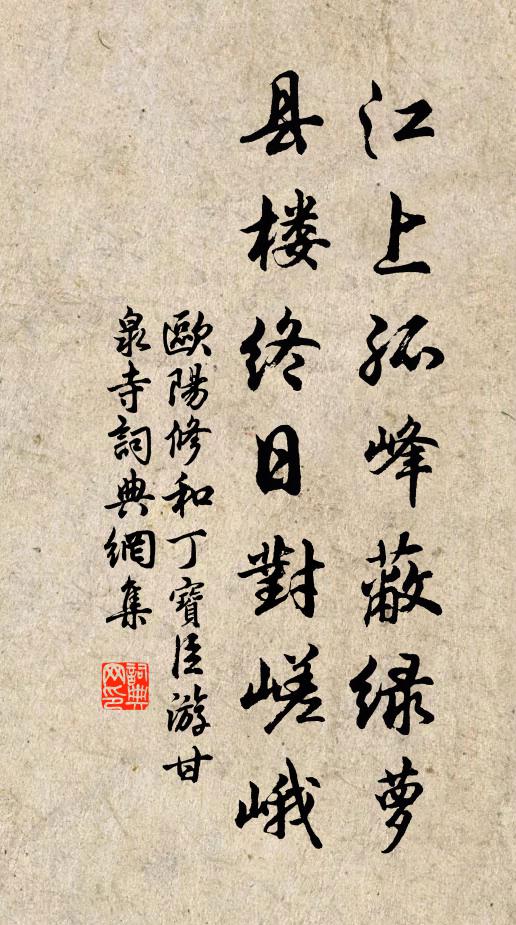 江上孤峰蔽绿萝
县楼终日對嵯峨
歐陽修和丁寶臣游甘
泉寺詞典網集
詞典网印